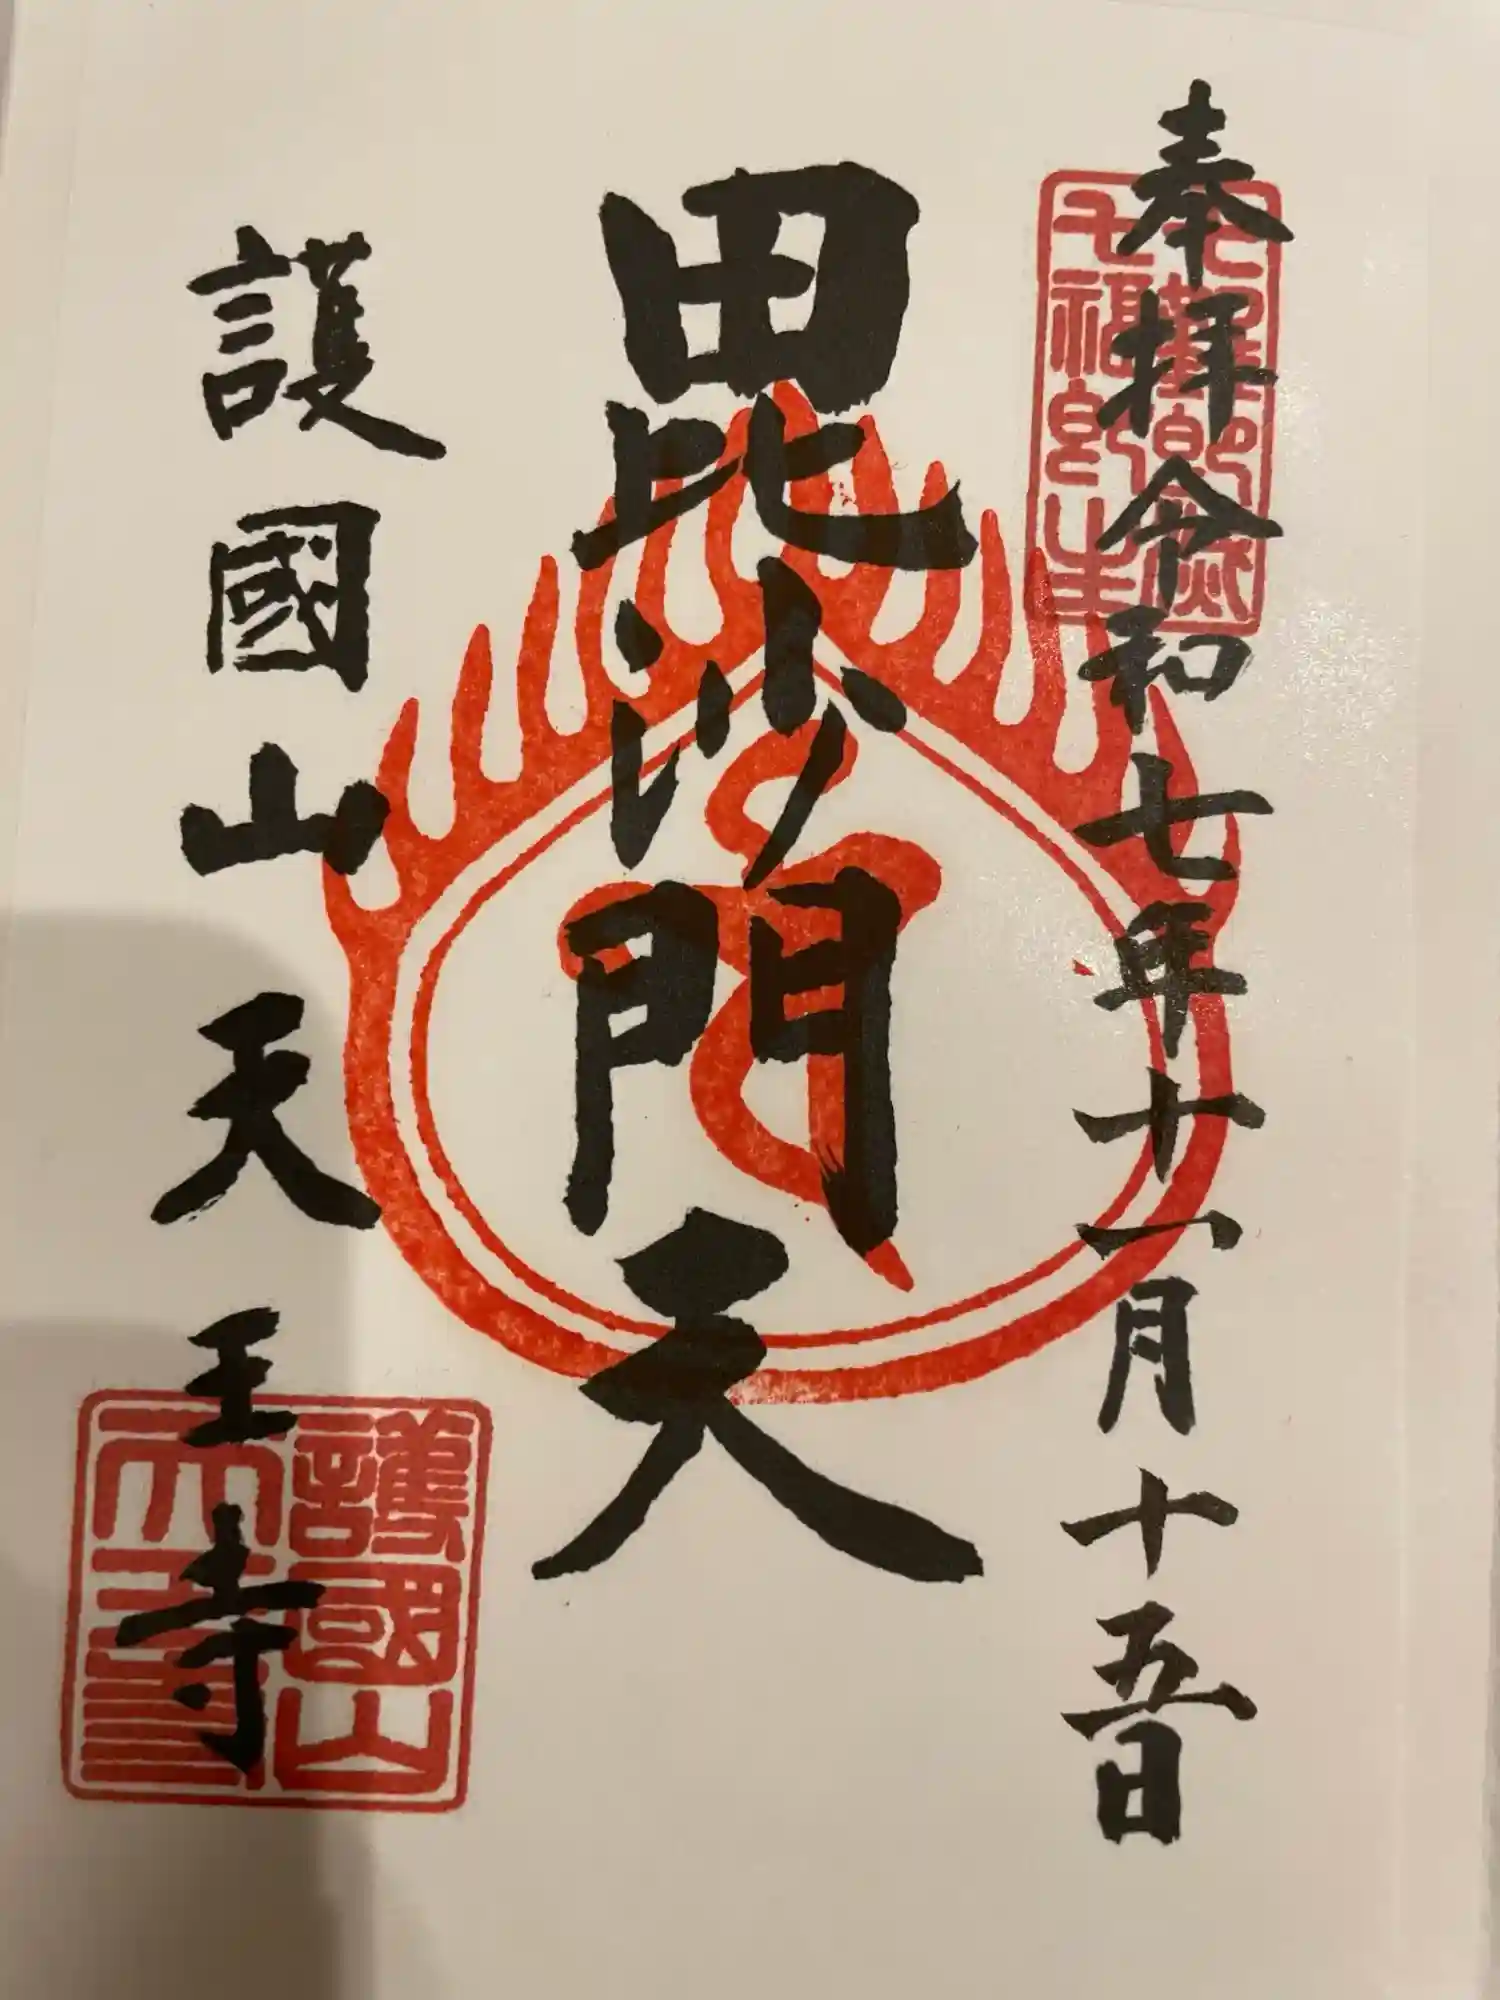 奉拝 令和七年十一月十五日
毘沙門天
護國山天王寺
護國山
天王寺